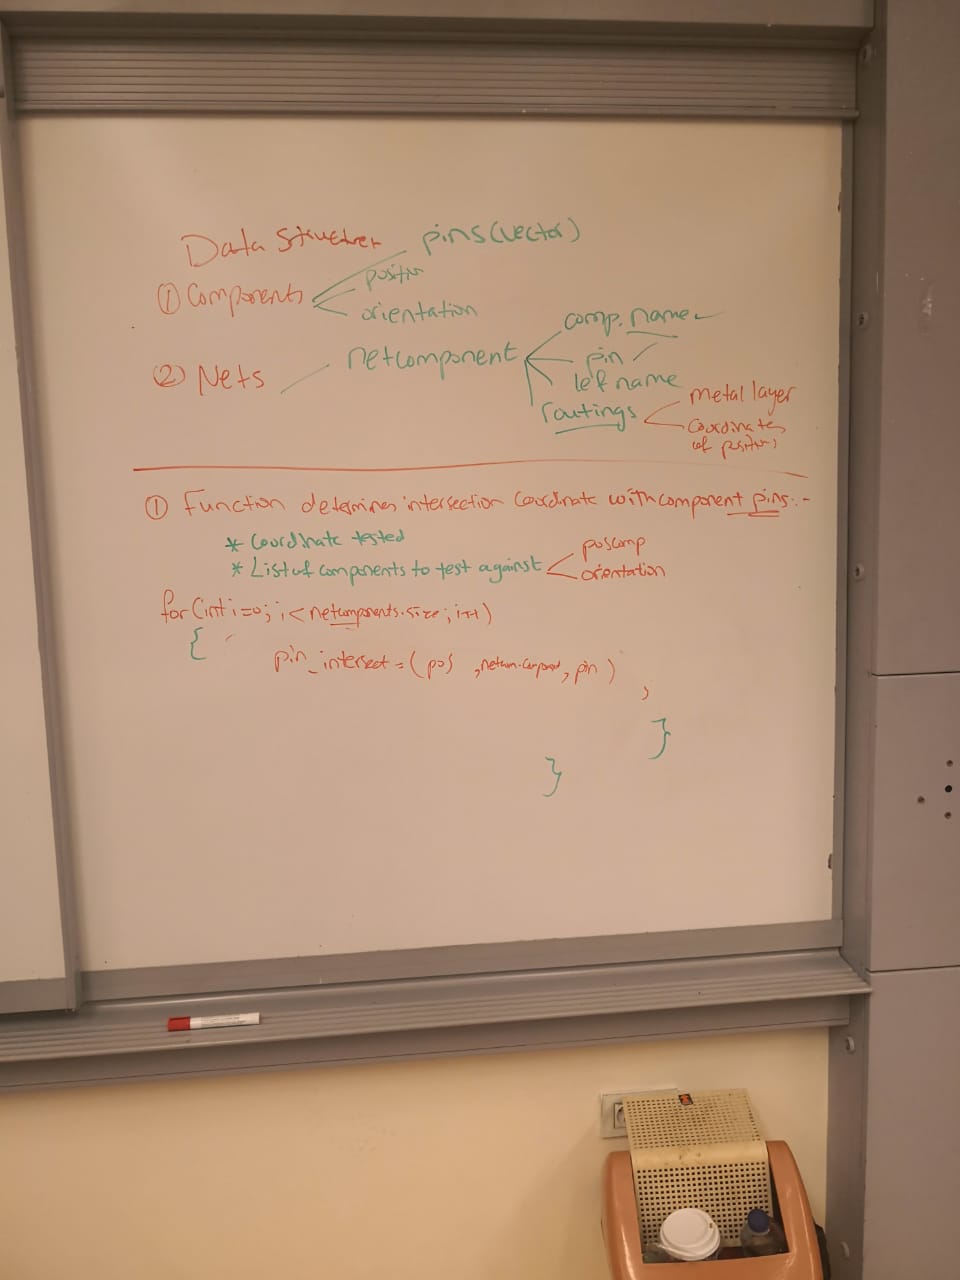 Data Structure
pins(vector)
① Components
position
orientation
comp. name
② Nets
netcomponent
pin
lef name
routings
metal layer
coordinates
of positions
① Function determines intersection coordinate with component pins:-
* Coordinate tested
* List of components to test against
poscomp
orientation
for(int i=0; i<netcomponents.size; i++)
{
pin_intersect = (pos , , pin)
;
}
}